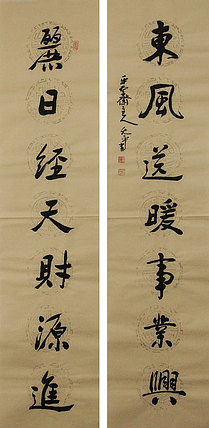 東風送暖事業興
麗日經天財源進